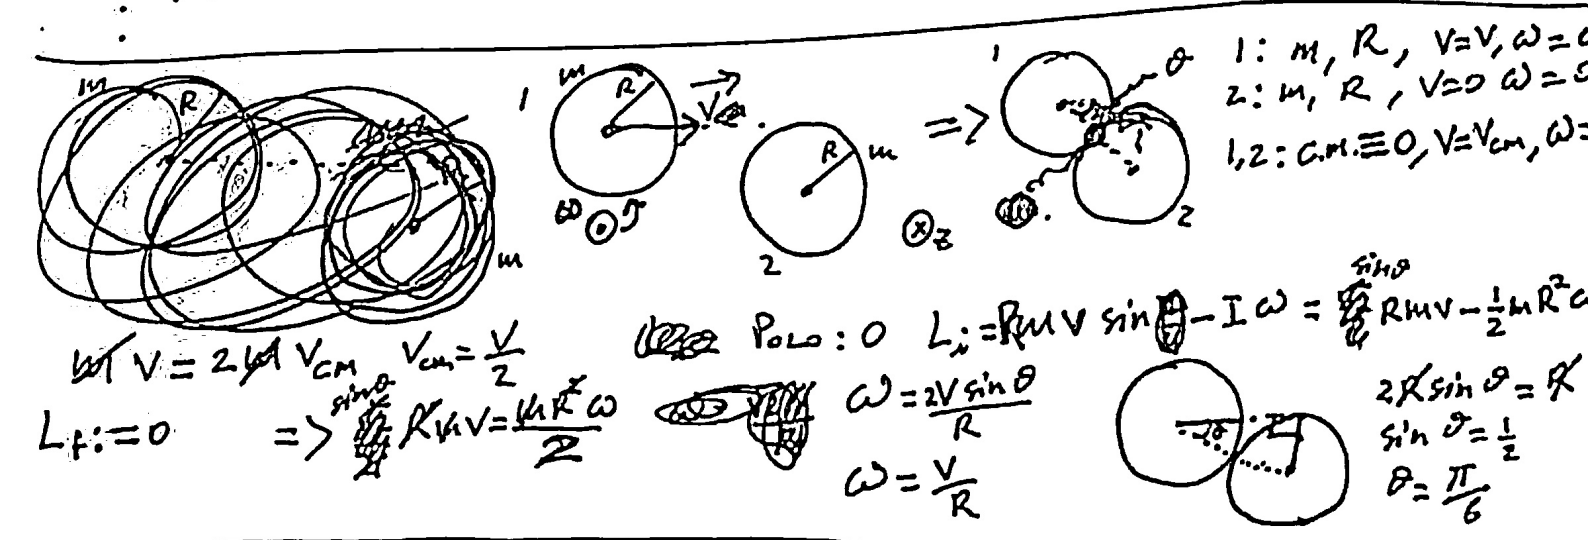 m
R
1
m
R
V
R
m
2
z
=>
1
θ
2
1: m, R, V=V, ω=
2: m, R, V=0 ω=0
1,2: C.M.≡0, V=V_CM, ω=
V = 2 V_CM V_CM = V/2
POLO: 0 L_i = RmV sin - Iω = sinθ RmV - 1/2 mR²
L_f = 0 => sinθ RmV = mR²ω/2
ω = 2V sinθ/R
ω = V/R
2R sin θ = R
sin θ = 1/2
θ = π/6